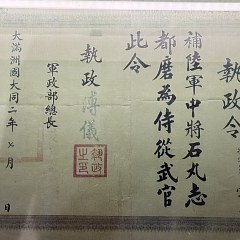 執政令
補陸軍中將石丸志
都磨為侍從武官
此令
執政溥儀
軍政部總長
大滿洲國大同二年七月 日